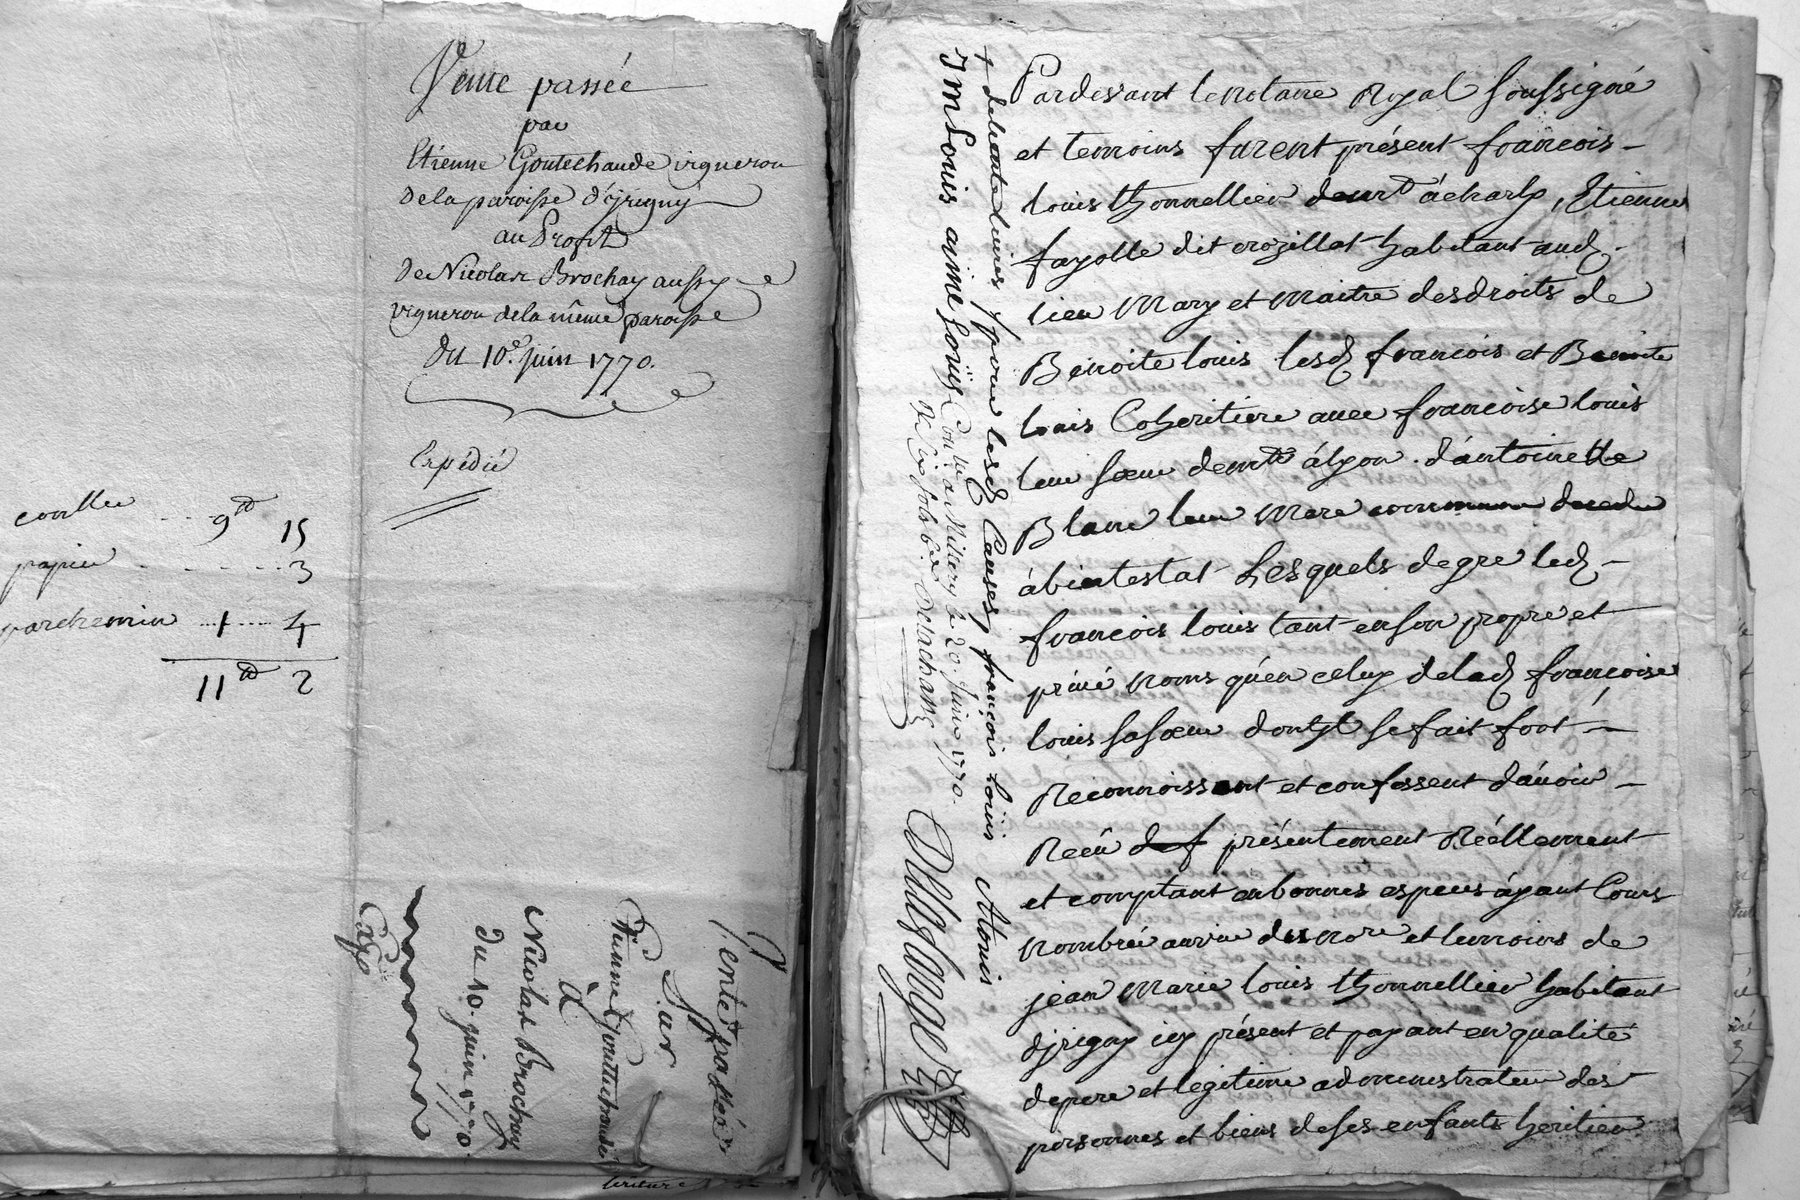 Vente passée
par
Etienne Goutechaude vigneron
de la paroisse d'yrigny
au Profit
de Nicolas Brochay aussy
vigneron de la même paroisse
du 10e. juin 1770.
Expédié
conlle 9 15
papier 3
parchemin 1 4
11 2
Vente passée
Par
Etienne Gouttechaude
à
Nicolas Brochay
du 10. juin 1770.
Exp
Pardevant le notaire Royal soussigné
et temoins furent présent francois
louis thonnellier demt à charly, Etienne
fayolle dit crozillat habitant aud
lieu Mary et Maitre des droits de
Benoite louis lesd francois et Benoite
louis Coheritiere avec francoise louis
leur soeur demte à lyon d'antoinette
Blanc leur Mere commune decedée
àbintestat Lesquels de gre led
francois louis tant en son propre et
privé noms qu'en celuy de lad françoise
louis sa soeur dont yl se fait fort
Reconnoissent et confessent d'avoir
Recû def présentement Réellement
et comptant en bonnes especes àyant Cours
nombrée au vue du nore et temoins de
jean Marie louis thonnellier habitant
d'jrigny icy présent et payant en qualité
de pere et legitime administrateur des
personnes et biens de ses enfants heritier
+ de trente livres pour lesd Causes francois louis Alouis
JM Louis aine Louis Conlle a Millery le 20. Juin 1770.